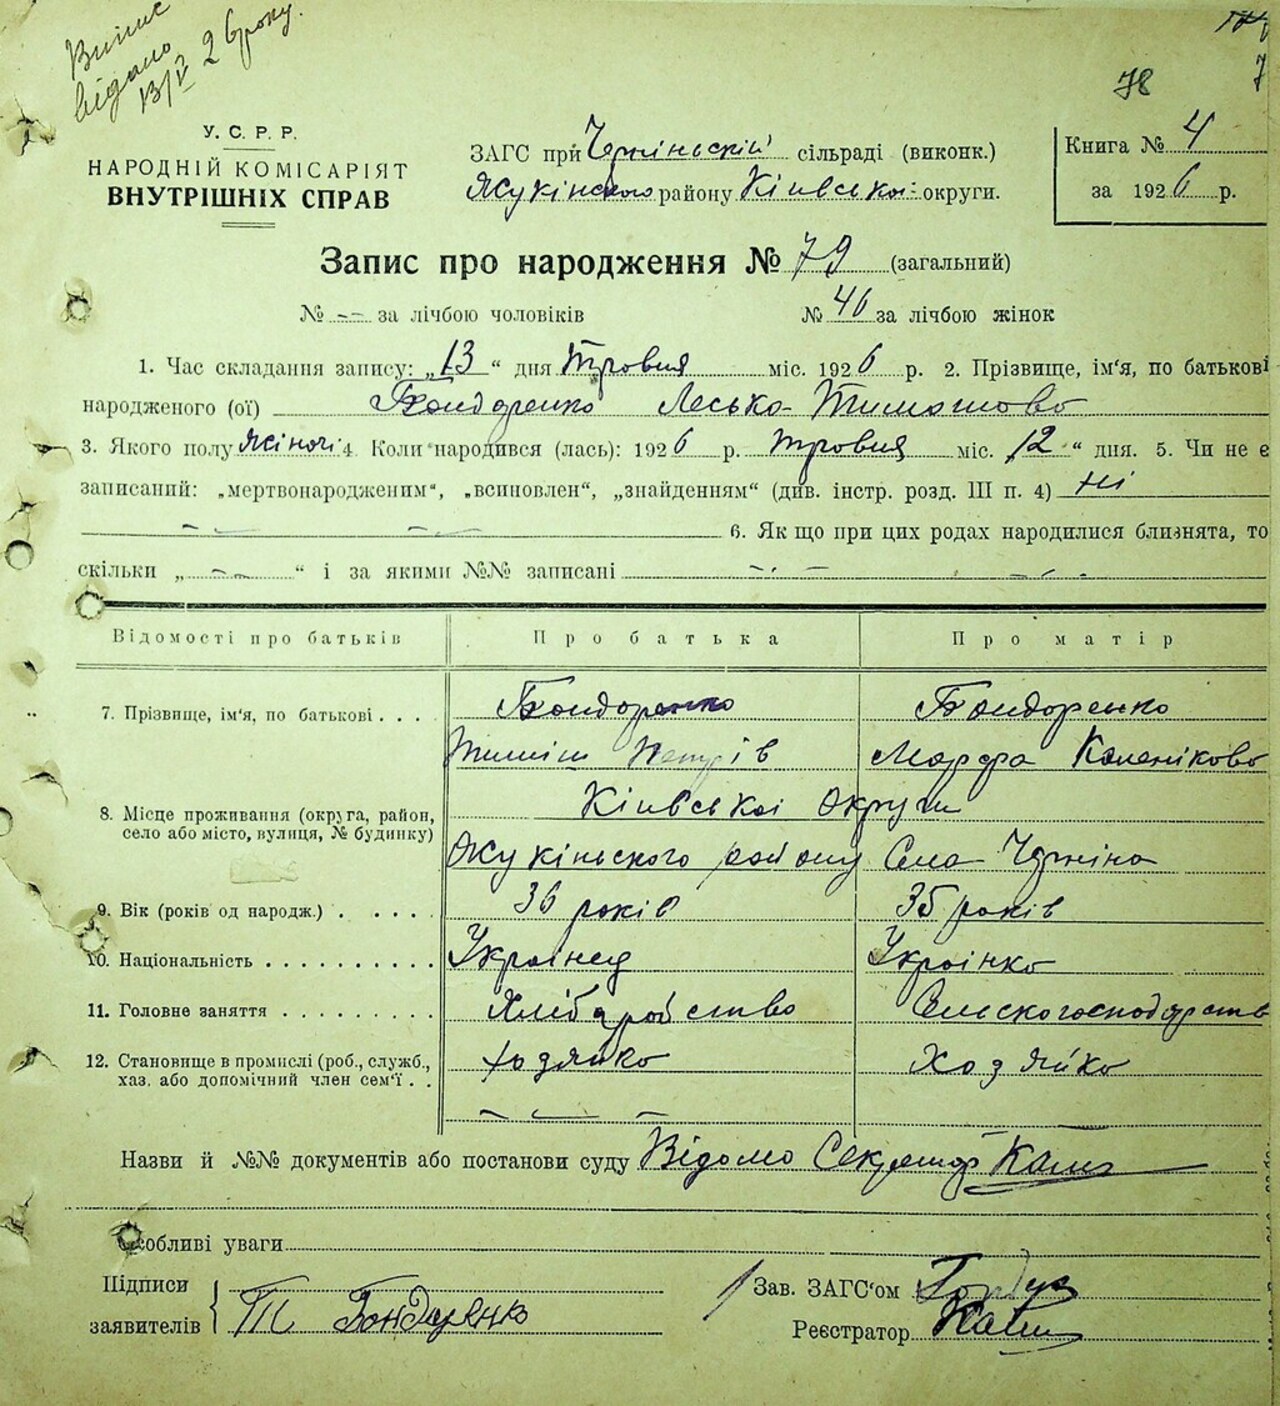 Випис
видано
13/V 26 року.
78
7
У. С. Р. Р.
НАРОДНІЙ КОМІСАРІЯТ
ВНУТРІШНІХ СПРАВ
ЗАГС при Чернінській сільраді (виконк.)
Жукінського району Київської округи.
Книга № 4
за 1926 р.
Запис про народження № 79 (загальний)
№ -- за лічбою чоловіків № 46 за лічбою жінок
1. Час складання запису: „13“ дня Травня міс. 1926 р. 2. Прізвище, ім'я, по батькові
народженого (ої) Бондаренко Леська Тимошова
3. Якого полу Жіночі 4. Коли народився (лась): 1926 р. травня міс. 12 “ дня. 5. Чи не є
записаний: „мертвонародженим“, „всиновлен“, „знайденням“ (див. інстр. розд. III п. 4) ні
6. Як що при цих родах народилися близнята, то
скільки „ -- “ і за якими №№ записані
Відомості про батьків Про батька Про матір
7. Прізвище, ім'я, по батькові . . . Бондаренко Бондаренко
Тиміш Петрів Марфа Каленікова
8. Місце проживання (округа, район, село або місто, вулиця, № будинку) Київської Округи
Жукінського району Села Черніна
9. Вік (років од народж.) . . . . . 36 років 35 років
10. Національність . . . . . . . . . . Українец Українка
11. Головне заняття . . . . . . . . . Хлібаробство Сельскогосподарств
12. Становище в промислі (роб., служб., хаз. або допомічний член сем'ї . . Хазяйко Хазяйка
Назви й №№ документів або постанови суду Відомо Секретар
Особливі уваги
Підписи
заявителів Т Бондаренко
Зав. ЗАГС'ом
Реєстратор